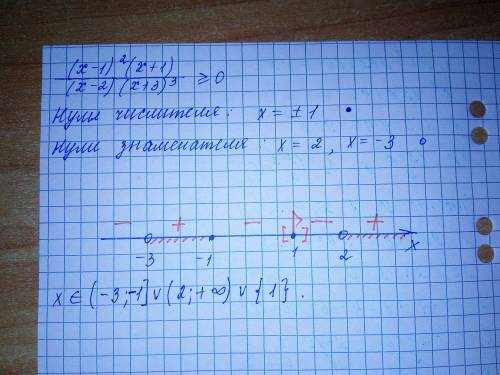 (x-1)²(x+1)
(x-2)(x+3)³ ≥ 0
Нули числителя: x = ±1 •
Нули знаменателя: x = 2, x = -3 o
- + - - +
-3 -1 1 2 x
x ∈ (-3;-1] ∨ (2;+∞) ∨ {1}.